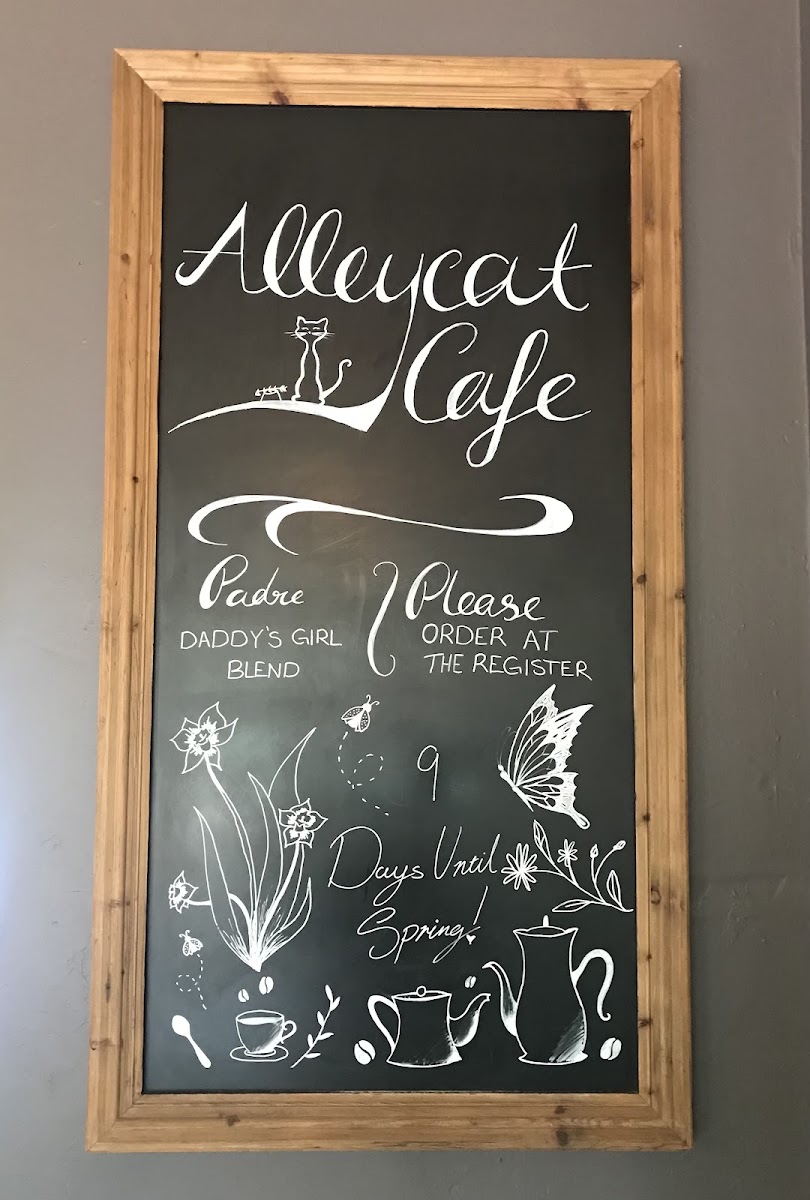 Alleycat
Cafe
Padre
DADDY'S GIRL
BLEND
Please
ORDER AT
THE REGISTER
9
Days Until
Spring!